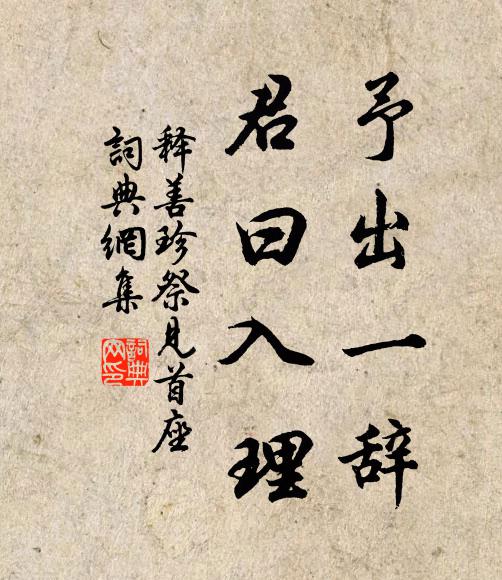 予出一辞
君曰入理
释善珍祭见首座
詞典網集
詞典网印